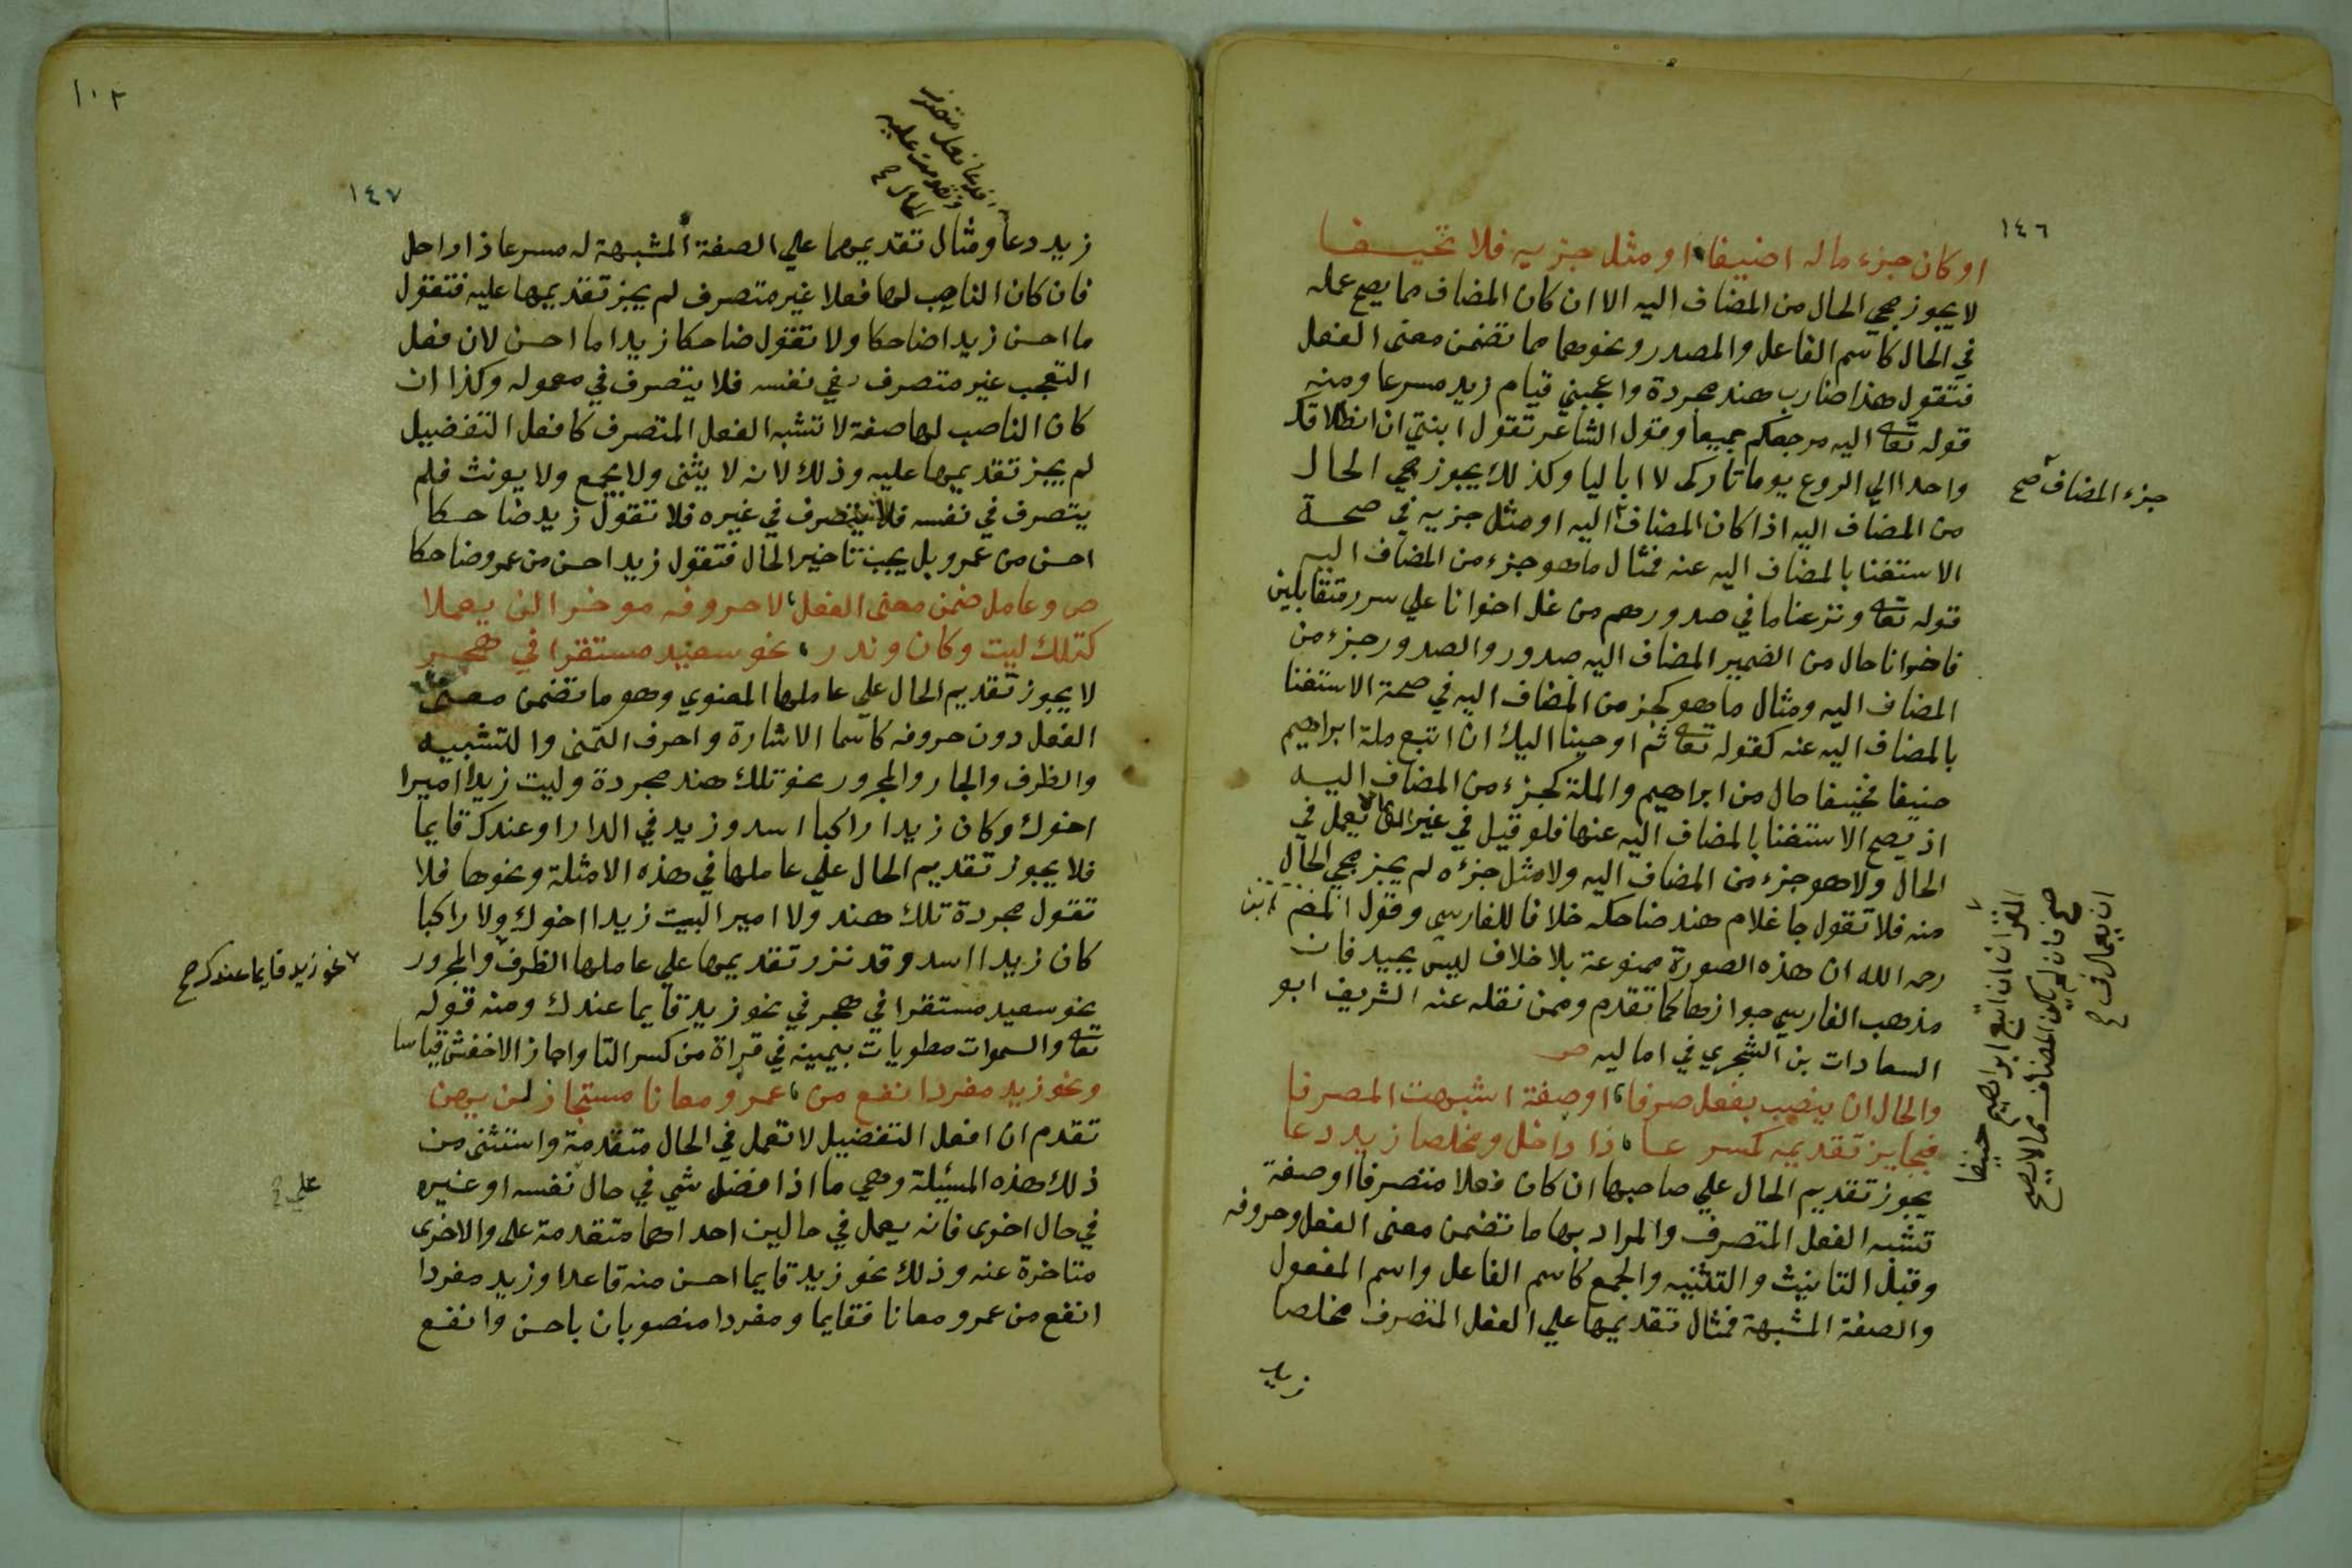 ١٤٦
او كان جزء ماله اضيفا او مثل جزيه فلا تحيفا
لا يجوز مجي الحال من المضاف اليه الا ان كان المضاف مما يصح عمله
في الحال كاسم الفاعل والمصدر ونحوهما مما تضمن معنى الفعل
فتقول هذا ضارب هند مجردة واعجبني قيام زيد مسرعا ومنه
قوله تعا اليه مرجعكم جميعا وقول الشاعر تقول ابنتي ان انطلاقك
واحدا الي الروع يوما تاركى لا ابا ليا وكذلك يجوز مجي الحال
من المضاف اليه اذا كان المضاف اليه او مثل جزيه في صحة
الاستغنا بالمضاف اليه عنه فمثال ما هو جزء من المضاف اليه
قوله تعا ونزعنا ما في صدورهم من غل اخوانا علي سرر متقابلين
فاخوانا حال من الضمير المضاف اليه صدور والصدور جزء من
المضاف اليه ومثال ما هو كجز من المضاف اليه في صحة الاستغنا
بالمضاف اليه عنه كقوله تعا ثم اوحينا اليك ان اتبع ملة ابراهيم
حنيفا فحنيفا حال من ابراهيم والملة كجزء من المضاف اليه
اذ يصح الاستغنا بالمضاف اليه عنها فلو قيل في غير القران
الحال ولا هو جزء من المضاف اليه ولا مثل جزءه لم يجز مجي الحال
منه فلا تقول جا غلام هند ضاحكه خلافا للفارسي وقول ابن المصنف
رحمه الله ان هذه الصورة ممنوعة بلا خلاف ليس بجيد فان
مذهب الفارسي جوازها كما تقدم وممن نقله عنه الشريف ابو
السعادات بن الشجري في اماليه ص
والحال ان ينصب بفعل صرفا او صفة اشبهت المصرفا
فجايز تقديمه كمسرعا ذا راحل ومخلصا زيد دعا
يجوز تقديم الحال علي صاحبها ان كان فعلا متصرفا او صفة
تشبه الفعل المتصرف والمراد بها ما تضمن معنى الفعل وحروفه
وقبل التانيث والتثنيه والجمع كاسم الفاعل واسم المفعول
والصفة المشبهة فمثال تقديمها علي الفعل المتصرف مخلصا
زيد
جزء المضاف صح
القران ان اتبع ابراهيم حنيفا
صح فان لم يكن المضاف مما لا يصح
ان يعمل في
١٠٢
١٤٧
زيد دعا ومثال تقديمها علي الصفة المشبهة له مسرعا ذا راحل
فان كان الناصب لها فعلا غير متصرف لم يجز تقديمها عليه فتقول
ما احسن زيدا ضاحكا ولا تقول ضاحكا زيدا ما احسن لان فعل
التعجب غير متصرف في نفسه فلا يتصرف في معموله وكذا ان
كان الناصب لها صفة لا تشبه الفعل المتصرف كافعل التفضيل
لم يجز تقديمها عليه وذلك لانه لا يثنى ولا يجمع ولا يونث فلم
يتصرف في نفسه فلا يتصرف في غيره فلا تقول زيد ضاحكا
احسن من عمرو بل يجب تاخير الحال فتقول زيد احسن من عمرو ضاحكا
ص وعامل ضمن معنى الفعل لا حروفه موخرا لن يعملا
كتلك ليت وكان وندر نحو سعيد مستقرا في هجر
لا يجوز تقديم الحال علي عاملها المعنوي وهو ما تضمن معنى
الفعل دون حروفه كاسما الاشارة واحرف التمنى والتشبيه
والظرف والجار والمجرور نحو تلك هند مجردة وليت زيدا اميرا
اخوك وكان زيدا راكبا اسد وزيد في الدار او عندك قايما
فلا يجوز تقديم الحال علي عاملها في هذه الامثلة ونحوها فلا
تقول مجردة تلك هند ولا اميرا ليت زيدا اخوك ولا راكبا
كان زيدا اسد وقد نزر تقديمها علي عاملها الظرف والمجرور
نحو سعيد مستقرا في هجر في نحو زيد قايما عندك ومنه قوله
تعا والسموات مطويات بيمينه في قراة من كسر التا واجاز الاخفش قياسا
ونحو زيد مفردا انفع من عمرو معانا مستجاز لن يهن
تقدم ان افعل التفضيل لا تعمل في الحال متقدمة واستثنى من
ذلك هذه المسئلة وهي ما اذا فضل شي في حال نفسه او غيره
في حال اخرى فانه يعمل في حالين احداهما متقدمة على والاخرى
متاخرة عنه وذلك نحو زيد قايما احسن منه قاعدا وزيد مفردا
انفع من عمرو معانا فقايما ومفردا منصوبان باحسن وانفع
نحو زيد قايما عندك صح
علي